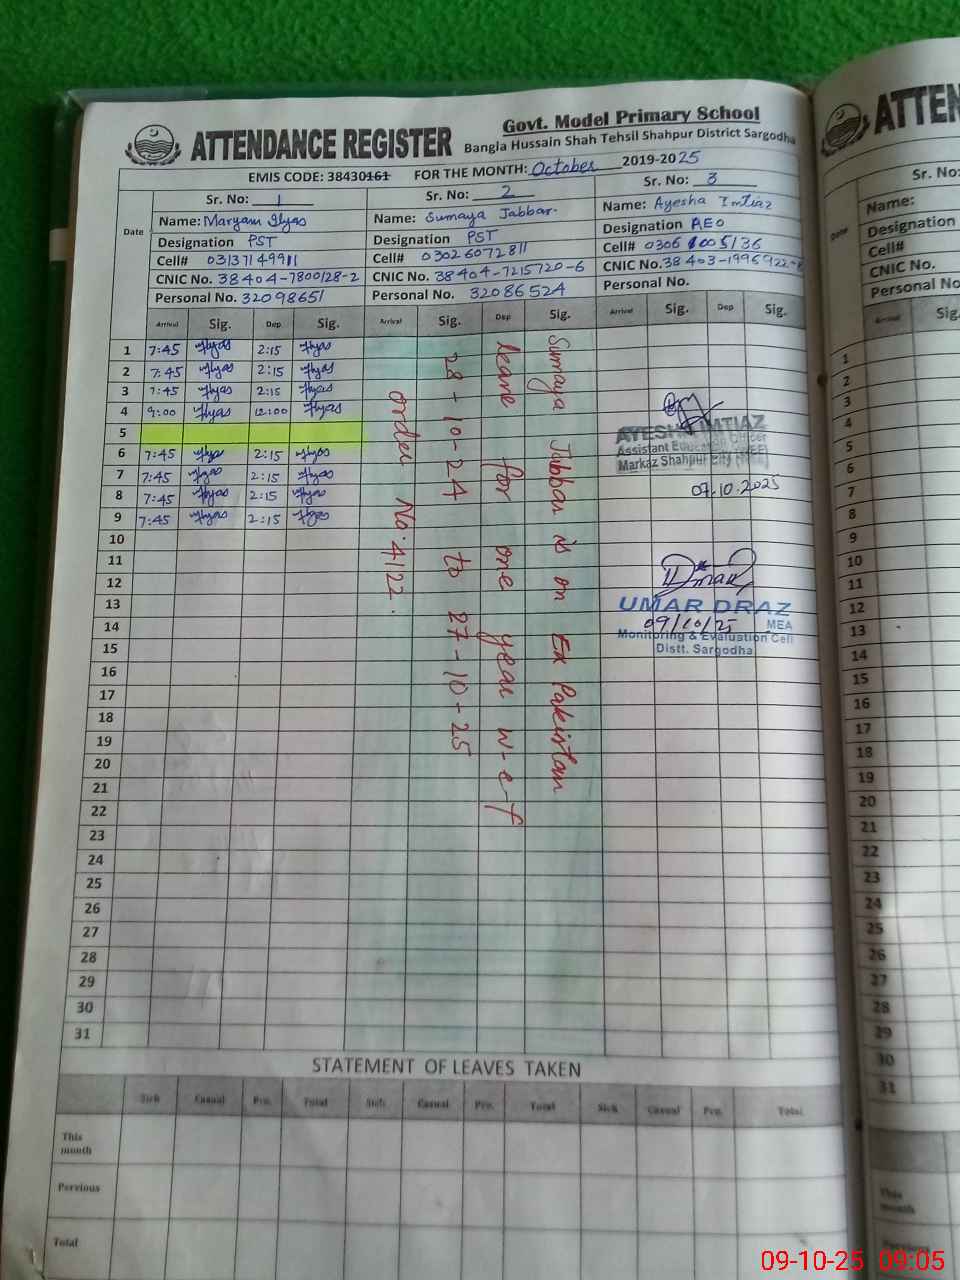 Govt. Model Primary School
ATTENDANCE REGISTER
Bangla Hussain Shah Tehsil Shahpur District Sargodha
EMIS CODE: 38430161 FOR THE MONTH: October 2019-2025
Date
Sr. No: 1
Name: Maryam Ilyas
Designation PST
Cell# 03137149911
CNIC No. 38404-7800128-2
Personal No. 32098651
Sr. No: 2
Name: Sumaya Jabbar.
Designation PST
Cell# 03026072811
CNIC No. 38404-7215720-6
Personal No. 32086524
Sr. No: 3
Name: Ayesha Imtiaz
Designation AEO
Cell# 0306 1005136
CNIC No. 38403-1996922-
Personal No.
Arrival Sig. Dep Sig. Arrival Sig. Dep Sig. Arrival Sig. Dep Sig.
1 7:45 Ilyas 2:15 Ilyas
2 7:45 Ilyas 2:15 Ilyas
3 7:45 Ilyas 2:15 Ilyas
4 9:00 Ilyas 12:00 Ilyas
5
6 7:45 Ilyas 2:15 Ilyas
7 7:45 Ilyas 2:15 Ilyas
8 7:45 Ilyas 2:15 Ilyas
9 7:45 Ilyas 2:15 Ilyas
10
11
12
13
14
15
16
17
18
19
20
21
22
23
24
25
26
27
28
29
30
31
Sumaya Jabbar is on Ex Pakistan
leave for one year w-e-f
28-10-24 to 27-10-25
order No. 4122.
AYESHA IMTIAZ
Assistant Education Officer
Markaz Shahpur City
07.10.2025
UMAR DRAZ
09/10/25 MEA
Monitoring & Evaluation Cell
Distt. Sargodha
STATEMENT OF LEAVES TAKEN
Sick Casual Prv. Total Sick Casual Prv. Total Sick Casual Prv. Total
This month
Pervious
Total
ATTEN
Sr. No:
Date
Name:
Designation
Cell#
CNIC No.
Personal No
Arrival Sig
1
2
3
4
5
6
7
8
9
10
11
12
13
14
15
16
17
18
19
20
21
22
23
24
25
26
27
28
29
30
31
This month
Pervious
09-10-25 09:05